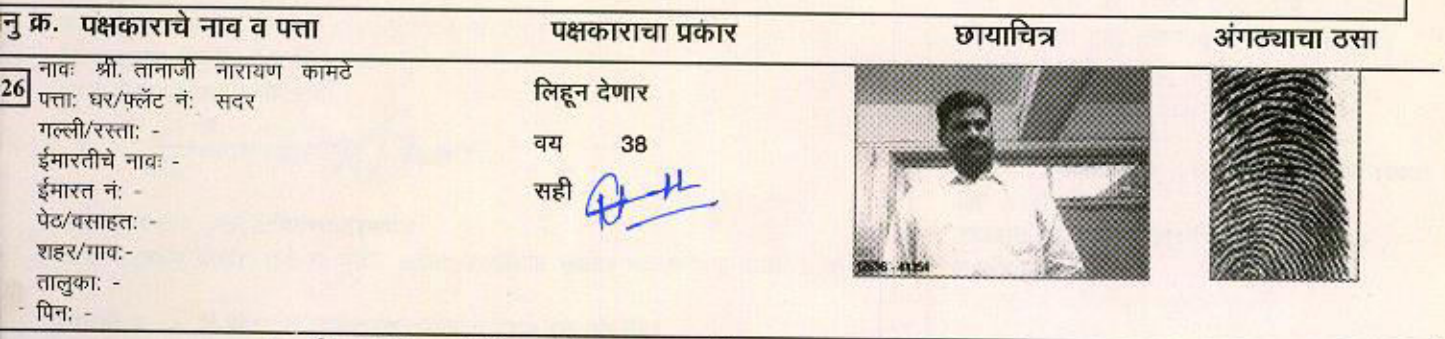 नु क्र. पक्षकाराचे नाव व पत्ता पक्षकाराचा प्रकार छायाचित्र अंगठ्याचा ठसा
26 नावः श्री. तानाजी नारायण कामठे
पत्ताः घर/फ्लॅट नंः सदर
गल्ली/रस्ताः -
ईमारतीचे नावः -
ईमारत नंः -
पेठ/वसाहतः
शहर/गावः-
तालुकाः -
पिनः -
लिहून देणार
वय 38
सही